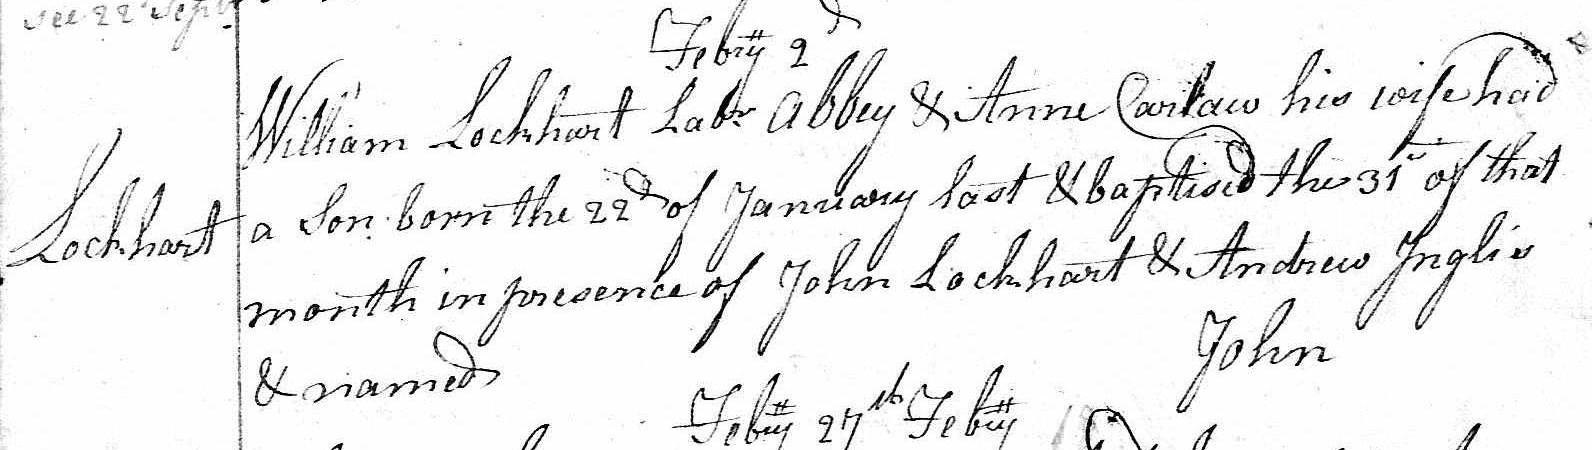 see 22 Sepr
Febry 2d
William Lockhart Labr Abbey & Anne Carlaw his wife had
Lockhart
a Son born the 22d of January last & baptised the 31st of that
month in presence of John Lockhart & Andrew Inglis
& named John
Febry 27th Febry